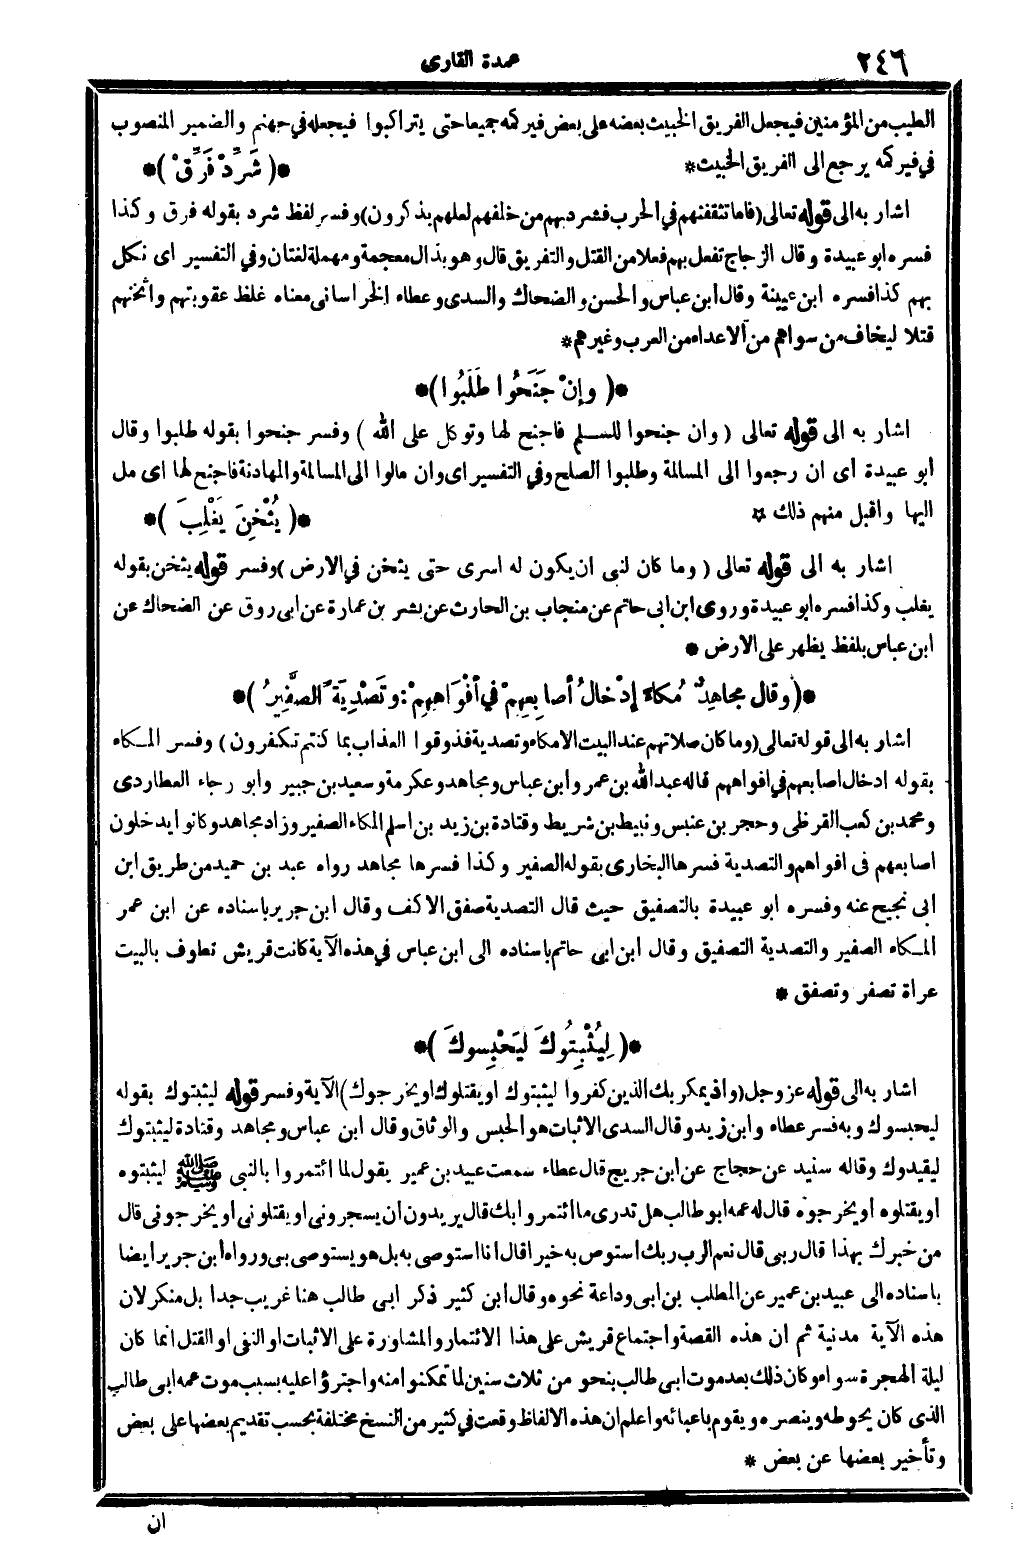 ٢٤٦
عمدة القارى
الطيب من المؤمنين فيجعل الفريق الخبيث بعضه على بعض فيركمه جميعا حتى يتراكبوا فيجعله في جهنم والضمير المنصوب
في فيركمه يرجع الى الفريق الخبيث *
*( شَرِّدْ فَرِّقْ )*
اشار به الى قوله تعالى (فاما تثقفنهم في الحرب فشرد بهم من خلفهم لعلهم يذكرون) وفسر لفظ شرد بقوله فرق وكذا
فسره ابو عبيدة وقال الزجاج تفعل بهم فعلا من القتل والتفريق قال وهو بذال معجمة ومهملة لغتان وفي التفسير اى نكل
بهم كذا فسره ابن عيينة وقال ابن عباس والحسن والضحاك والسدى وعطاء الخراسانى معناه غلظ عقوبتهم وأثخنهم
قتلا ليخاف من سواهم من الاعداء من العرب وغيرهم *
*( وإنْ جَنَحُوا طَلَبُوا )*
اشار به الى قوله تعالى ( وان جنحوا للسلم فاجنح لها وتوكل على الله ) وفسر جنحوا بقوله طلبوا وقال
أبو عبيدة أى ان رجعوا الى المسالمة وطلبوا الصلح وفي التفسير اى وان مالوا الى المسالمة والمهادنة فاجنح لها اى مل
اليها واقبل منهم ذلك *
*( يُثْخِنَ يَغْلِبَ )*
اشار به الى قوله تعالى ( وما كان لنبى ان يكون له اسرى حتى يثخن في الارض ) وفسر قوله يثخن بقوله
يغلب وكذا فسره ابو عبيدة وروى ابن ابى حاتم عن منجاب بن الحارث عن بشر بن عمارة عن ابى روق عن الضحاك عن
ابن عباس بلفظ يظهر على الارض *
*( وقال مجاهِدٌ مُكاءً إدْخالُ أصابِعِهِمْ في أفْوَاهِهِمْ : وتَصْدِيَةً الصَّفِيرُ )*
اشار به الى قوله تعالى (وما كان صلاتهم عند البيت الا مكاء وتصدية فذوقوا العذاب بما كنتم تكفرون) وفسر المكاء
بقوله ادخال اصابعهم في افواههم قاله عبد الله بن عمر وابن عباس ومجاهد وعكرمة وسعيد بن جبير وابو رجاء العطاردى
ومحمد بن كعب القرظى وحجر بن عنبس ونبيط بن شريط وقتادة بن زيد بن اسلم المكاء الصفير وزاد مجاهد وكانوا يدخلون
اصابعهم فى افواههم والتصدية فسرها البخارى بقوله الصفير وكذا فسرها مجاهد رواه عبد بن حميد من طريق ابن
ابى نجيح عنه وفسره ابو عبيدة بالتصفيق حيث قال التصدية صفق الاكف وقال ابن جرير باسناده عن ابن عمر
المكاء الصفير والتصدية التصفيق وقال ابن ابى حاتم باسناده الى ابن عباس في هذه الآية كانت قريش تطوف بالبيت
عراة تصفر وتصفق *
*( لِيُثْبِتُوكَ لِيَحْبِسوكَ )*
اشار به الى قوله عز وجل (واذ يمكر بك الذين كفروا ليثبتوك او يقتلوك او يخرجوك) الآية وفسر قوله ليثبتوك بقوله
ليحبسوك وبه فسر عطاء وابن زيد وقال السدى الاثبات هو الحبس والوثاق وقال ابن عباس ومجاهد وقتادة ليثبتوك
ليقيدوك وقاله سنيد عن حجاج عن ابن جريج قال عطاء سمعت عبيد بن عمير يقول لما ائتمروا بالنبى ﷺ ليثبتوه
او يقتلوه او يخرجوه قال له عمه ابو طالب هل تدرى ما ائتمروا بك قال يريدون ان يسجرونى او يقتلونى او يخرجونى قال
من خبرك بهذا قال ربى قال نعم الرب ربك استوص به خيرا قال انا استوصى به بل هو يستوصى بى ورواه ابن جرير ايضا
باسناده الى عبيد بن عمير عن المطلب بن ابى وداعة نحوه وقال ابن كثير ذكر ابى طالب هنا غريب جدا بل منكر لان
هذه الآية مدنية ثم ان هذه القصة واجتماع قريش على هذا الائتمار والمشاورة على الاثبات او النفى او القتل انما كان
ليلة الهجرة سواء وكان ذلك بعد موت ابى طالب بنحو من ثلاث سنين لما تمكنوا منه واجترؤا عليه بسبب موت عمه ابى طالب
الذى كان يحوطه وينصره ويقوم باعبائه واعلم ان هذه الالفاظ وقعت في كثير من النسخ مختلفة بحسب تقديم بعضها على بعض
وتأخير بعضها عن بعض *
ان